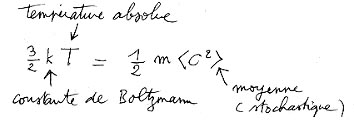 température absolue
3/2 k T = 1/2 m ⟨C²⟩
constante de Boltzmann
moyenne
(stochastique)